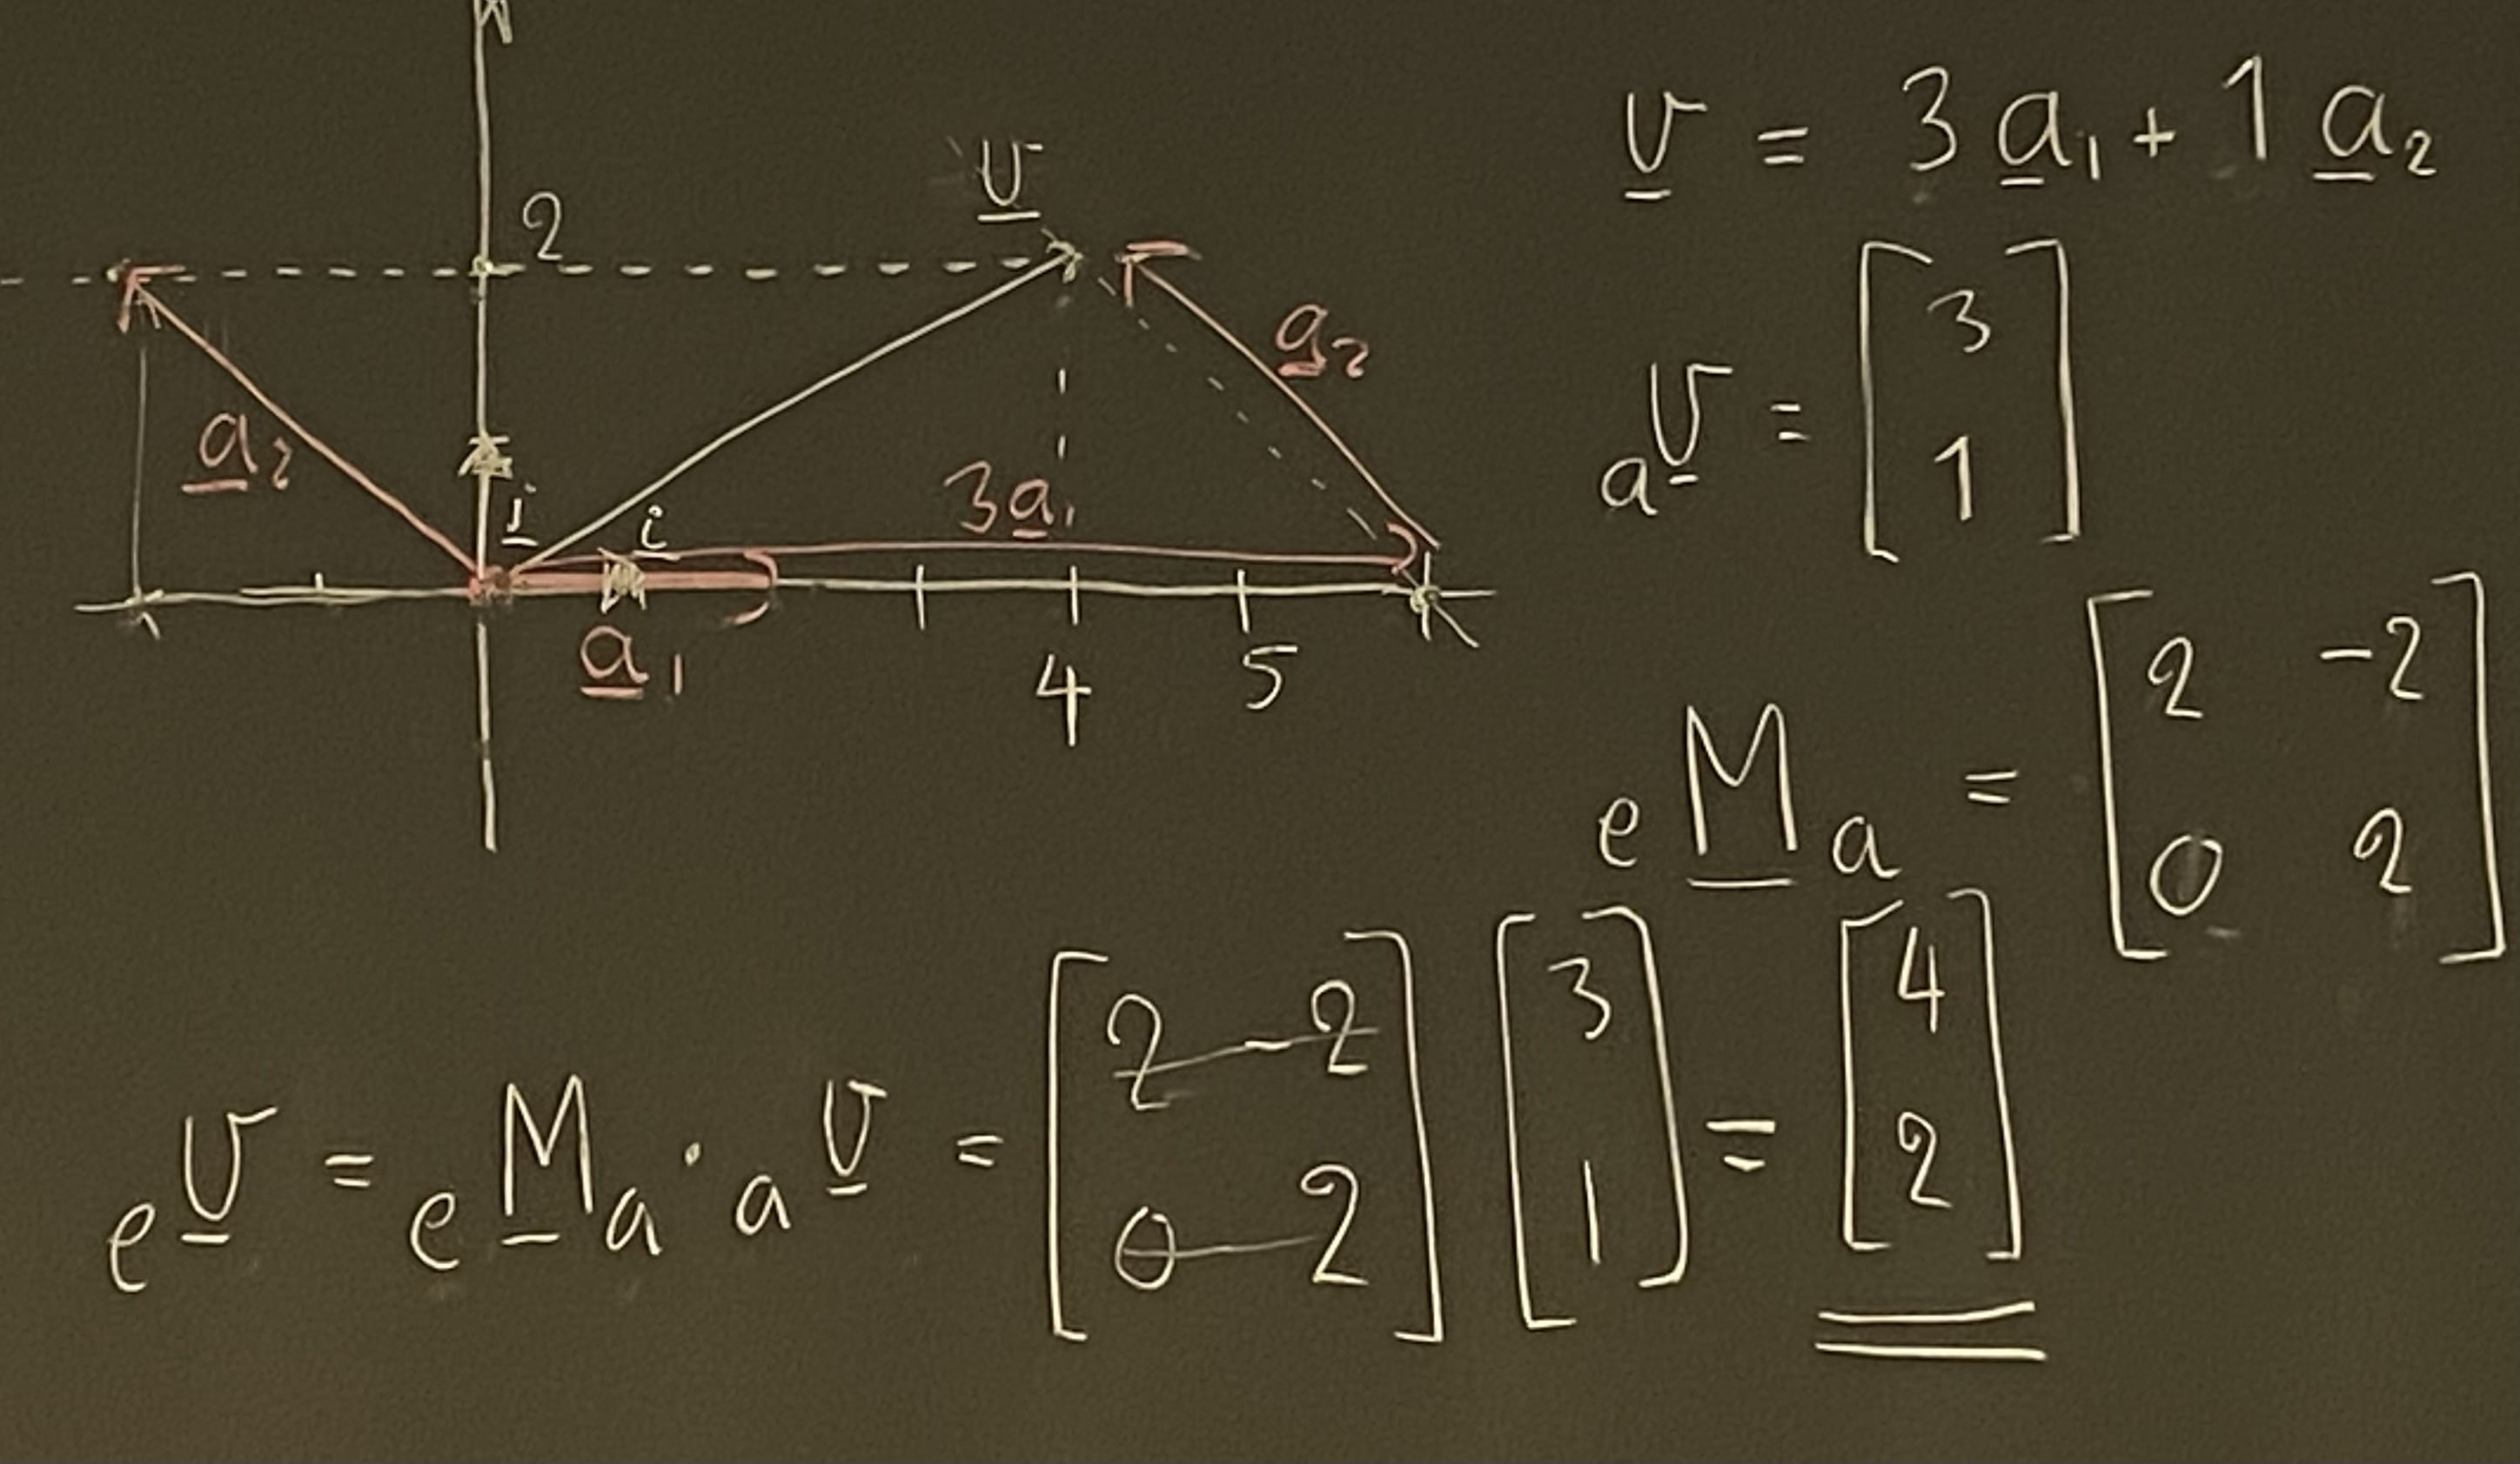 2
v
a₂
a₂
j
i
3a₁
a₁
4 5
v = 3a₁ + 1a₂
ₐv = [3
1]
ₑMₐ = [2 -2
0 2]
ₑv = ₑMₐ · ₐv = [2 -2
0 2] [3
1] = [4
2]